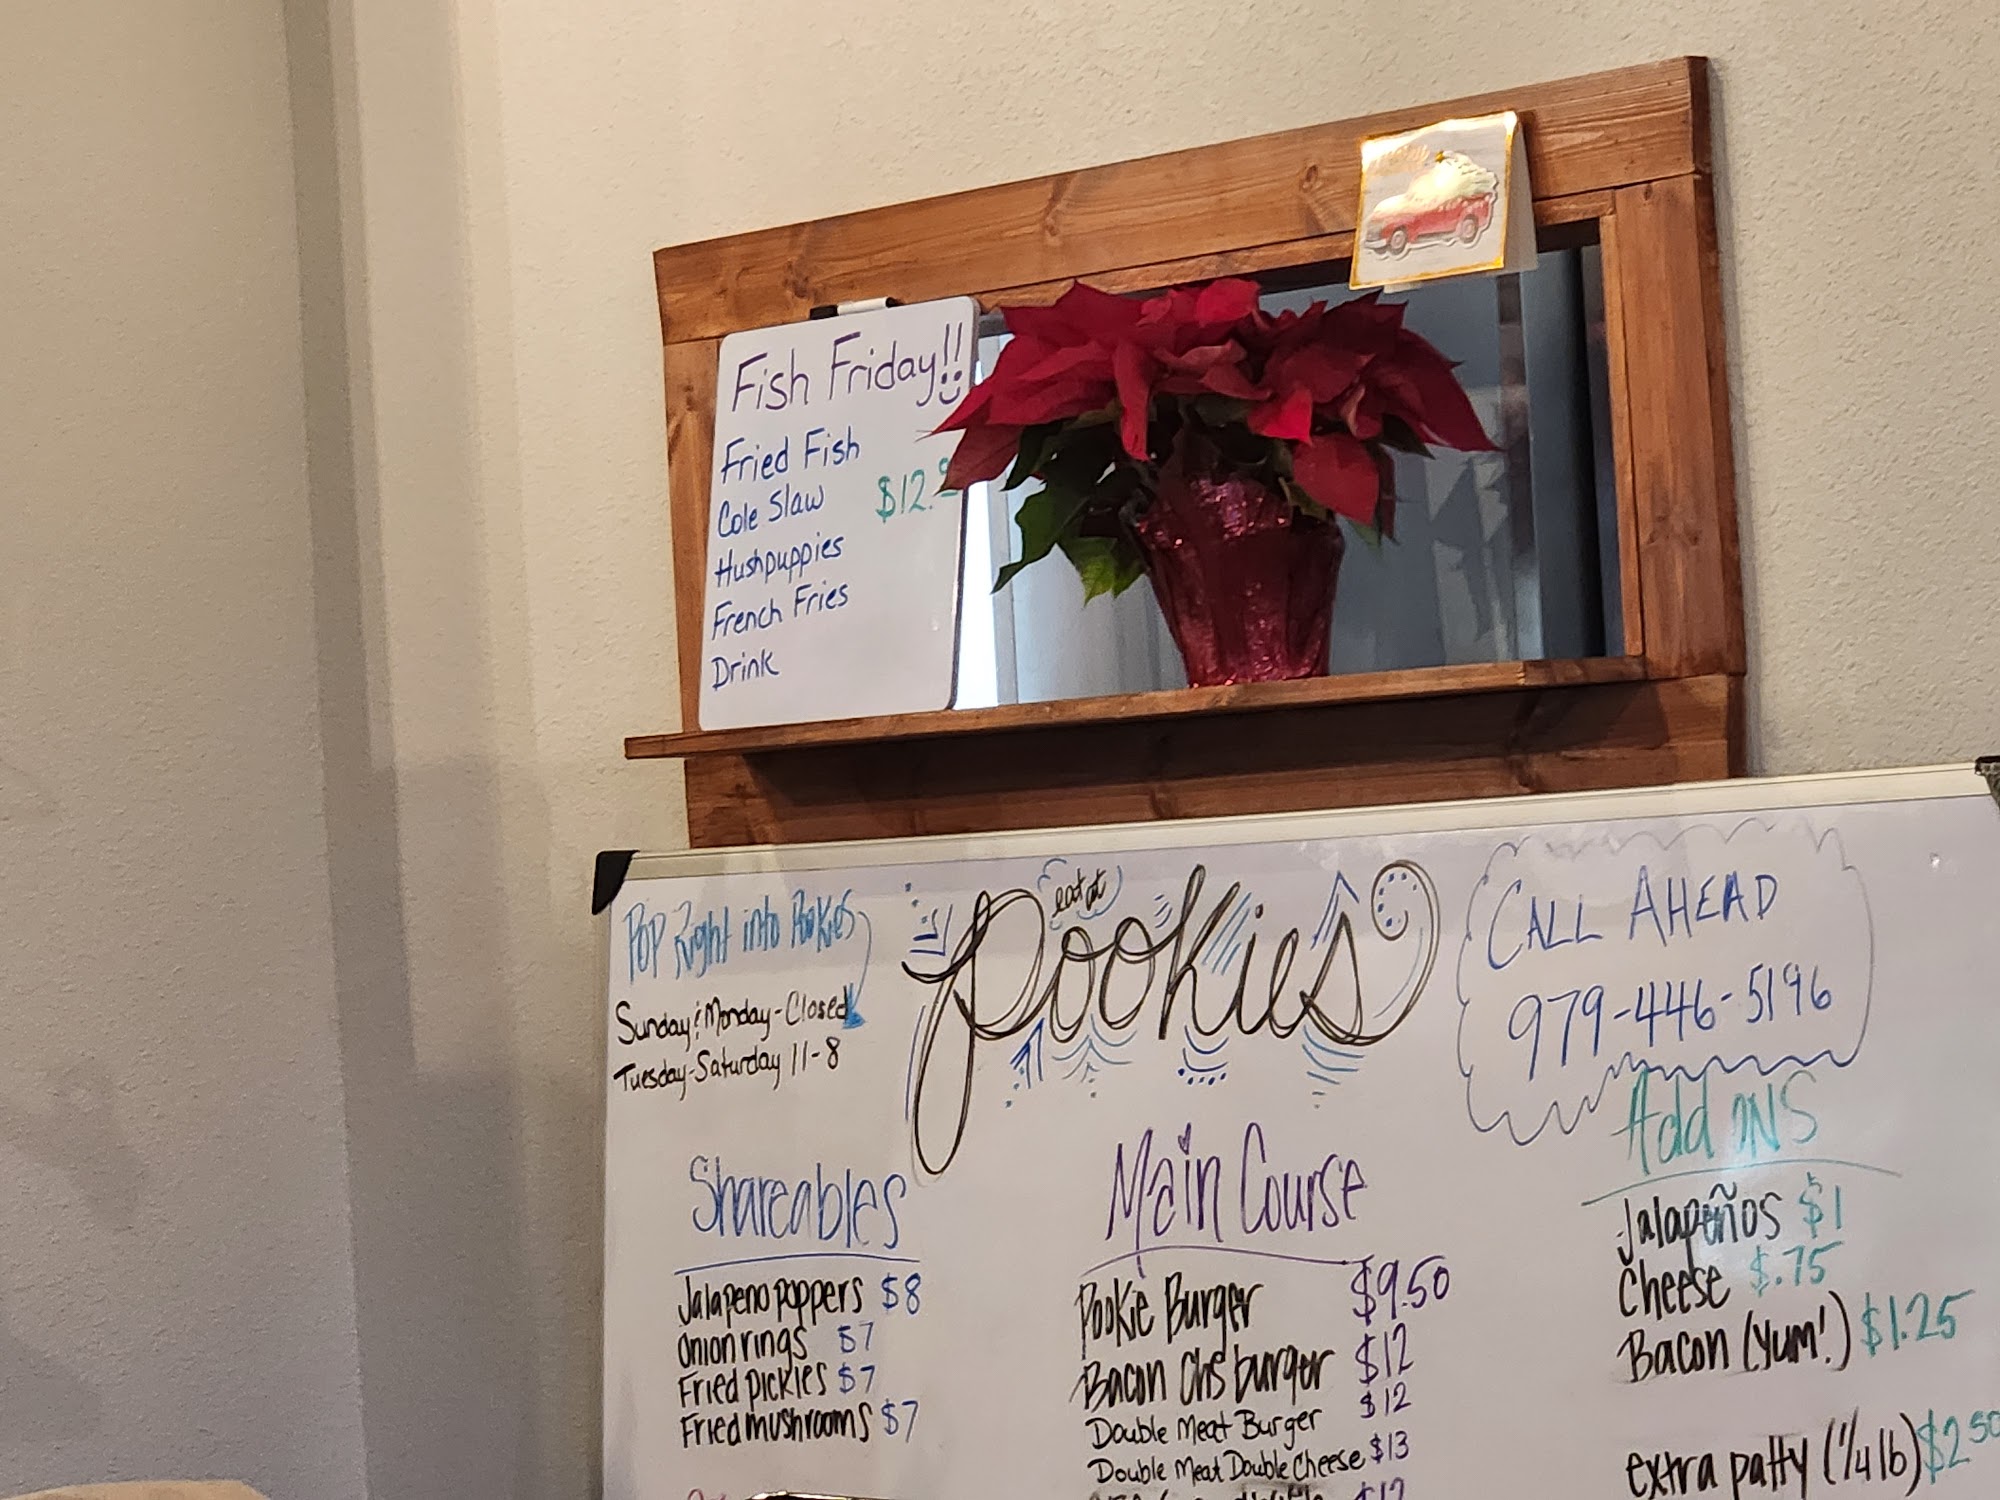 Fish Friday!!
Fried Fish
Cole Slaw $12.
Hushpuppies
French Fries
Drink
Pop Right into Pookies
Sunday & Monday - Closed
Tuesday-Saturday 11-8
eat at
Pookies
CALL AHEAD
979-446-5196
Shareables
Jalapeno poppers $8
Onion rings $7
Fried pickles $7
Fried mushrooms $7
Main Course
Pookie Burger $9.50
Bacon Chs burger $12
Double Meat Burger $12
Double Meat Double Cheese $13
$12
Add ONS
Jalapeños $1
Cheese $.75
Bacon (yum!) $1.25
extra patty (1/4 lb) $2.50